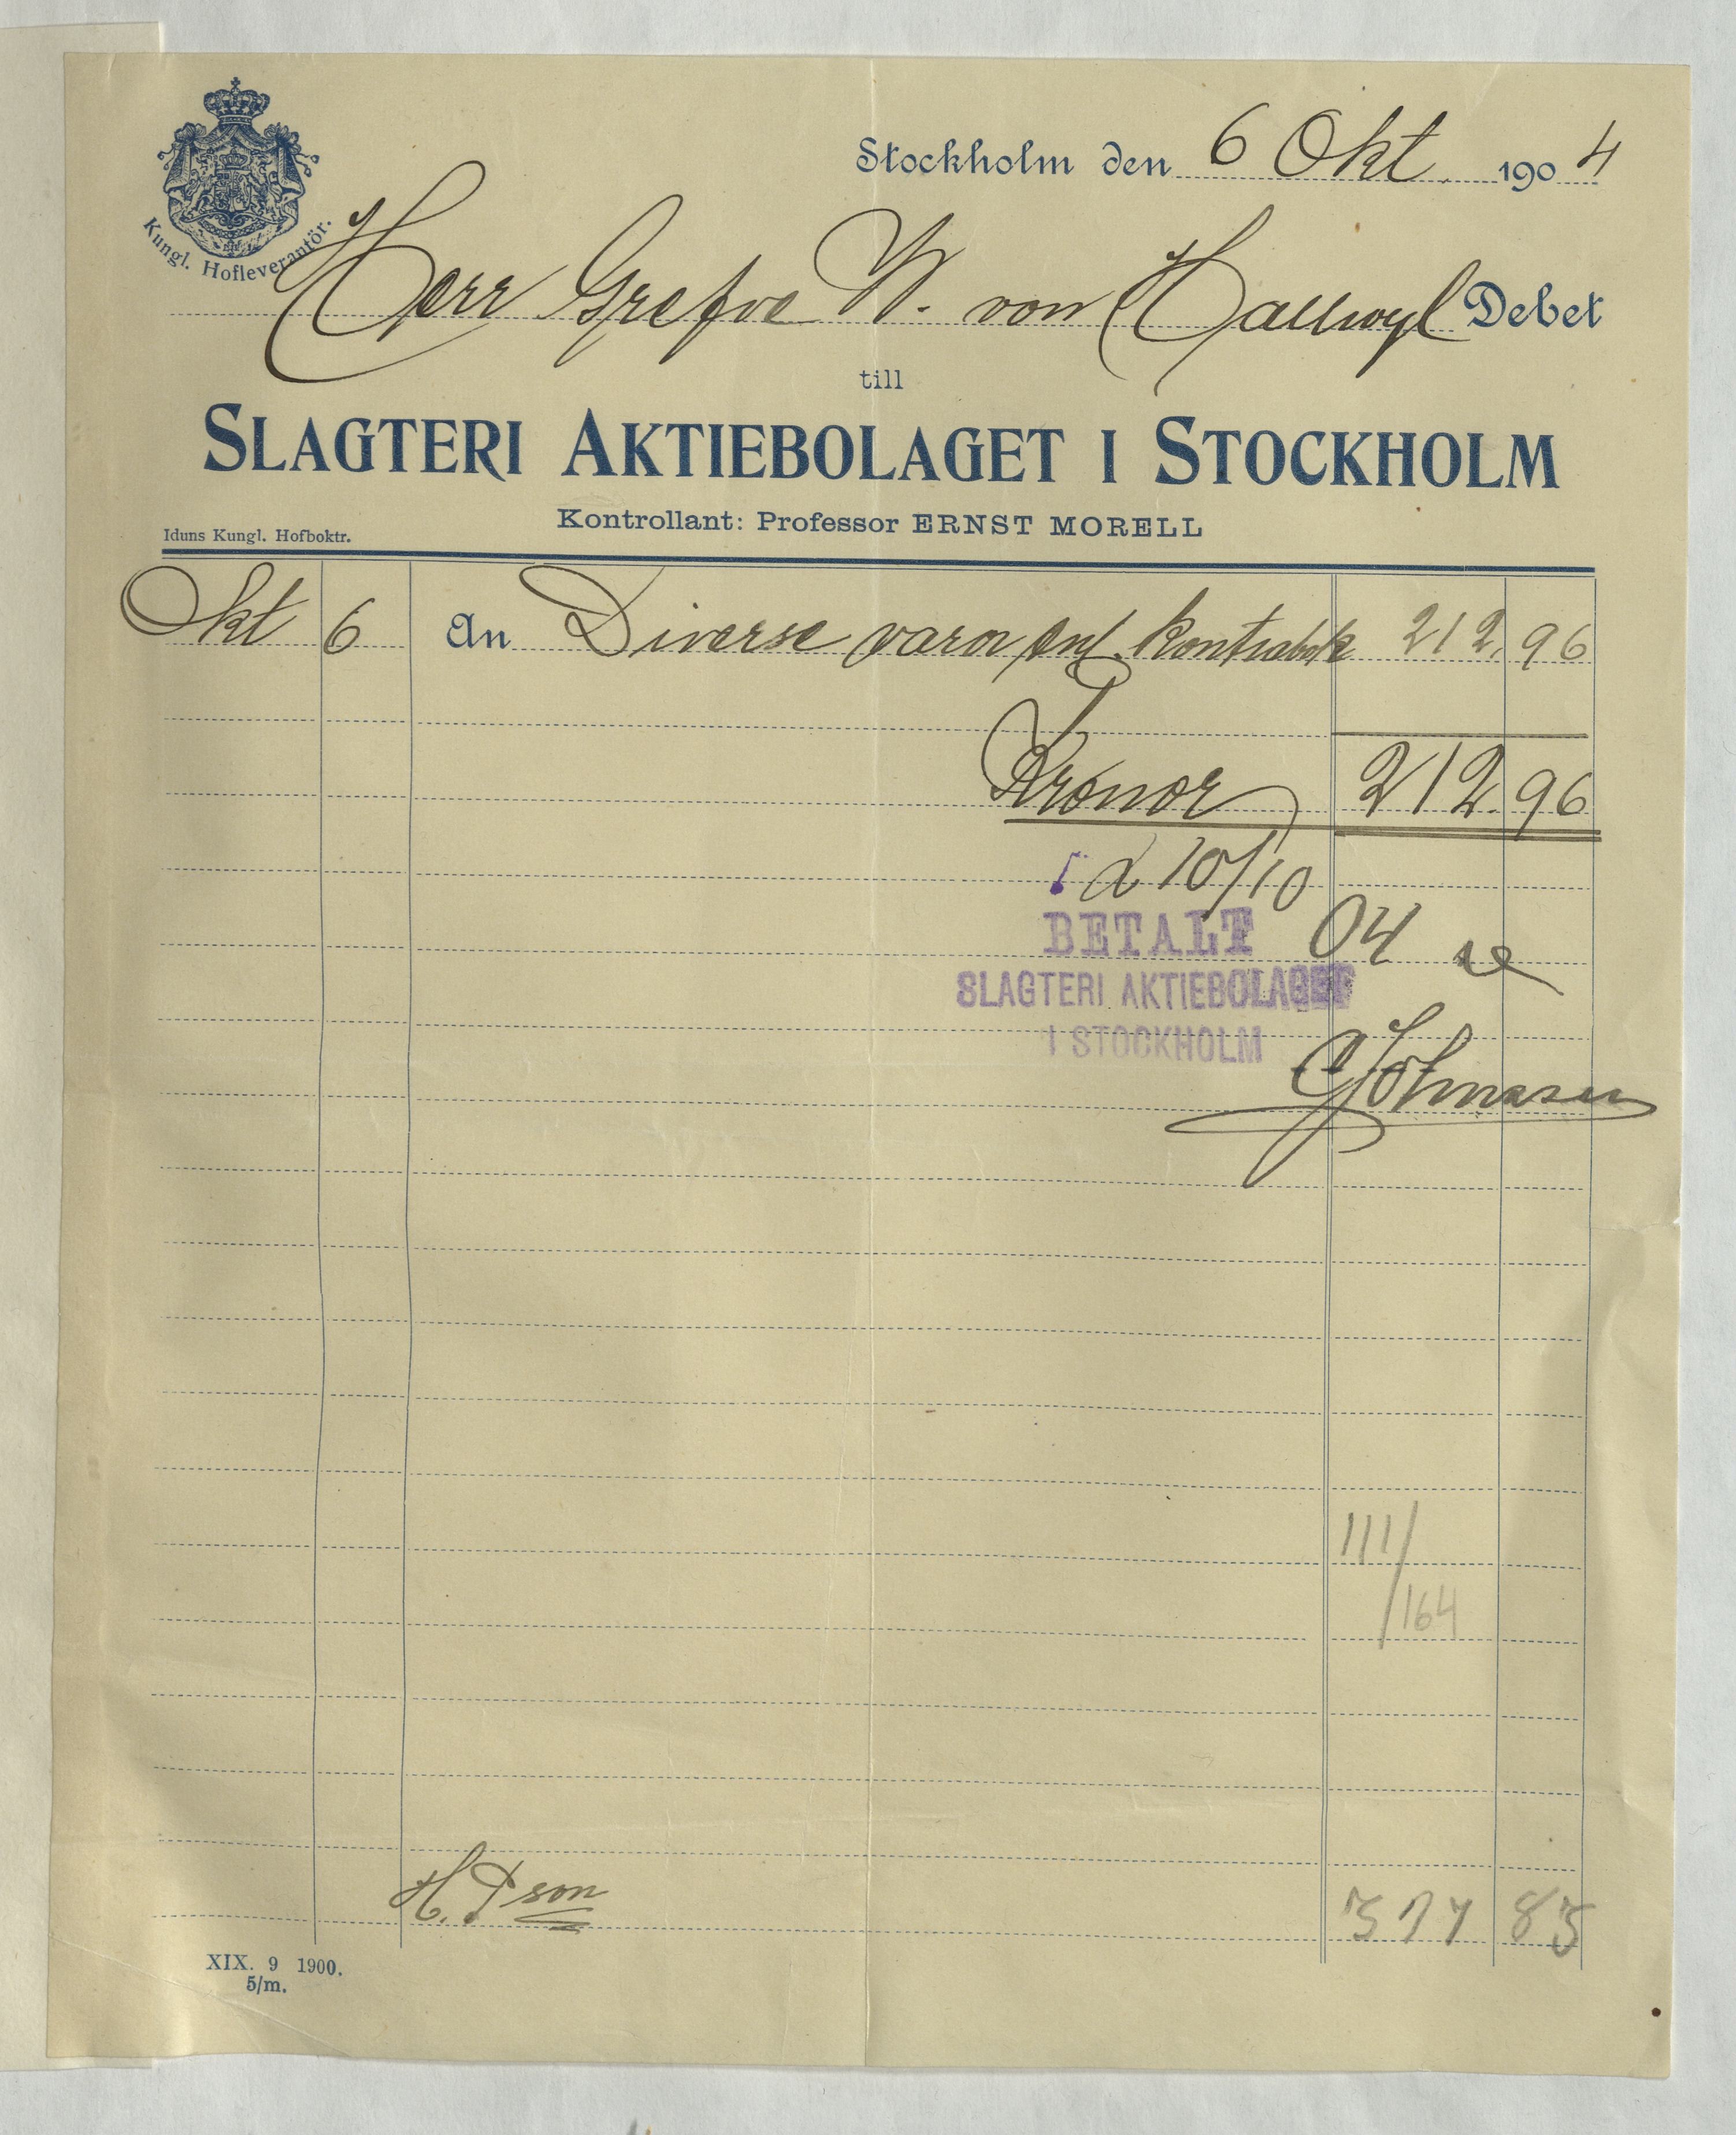 Stockholm den 6 Okt. 1904
Kungl. Hofleverantör.
Herr Grefve W. von Hallwyl Debet
till
SLAGTERI AKTIEBOLAGET I STOCKHOLM
Kontrollant: Professor ERNST MORELL
Iduns Kungl. Hofboktr.
Okt 6 An Diverse varor enl. kontrabok 212.96
Kronor 212.96
d 10/10
04
BETALT
SLAGTERI AKTIEBOLAGET
I STOCKHOLM
CJohnsson
111/
/164
H. Pson
577 85
XIX. 9 1900.
5/m.